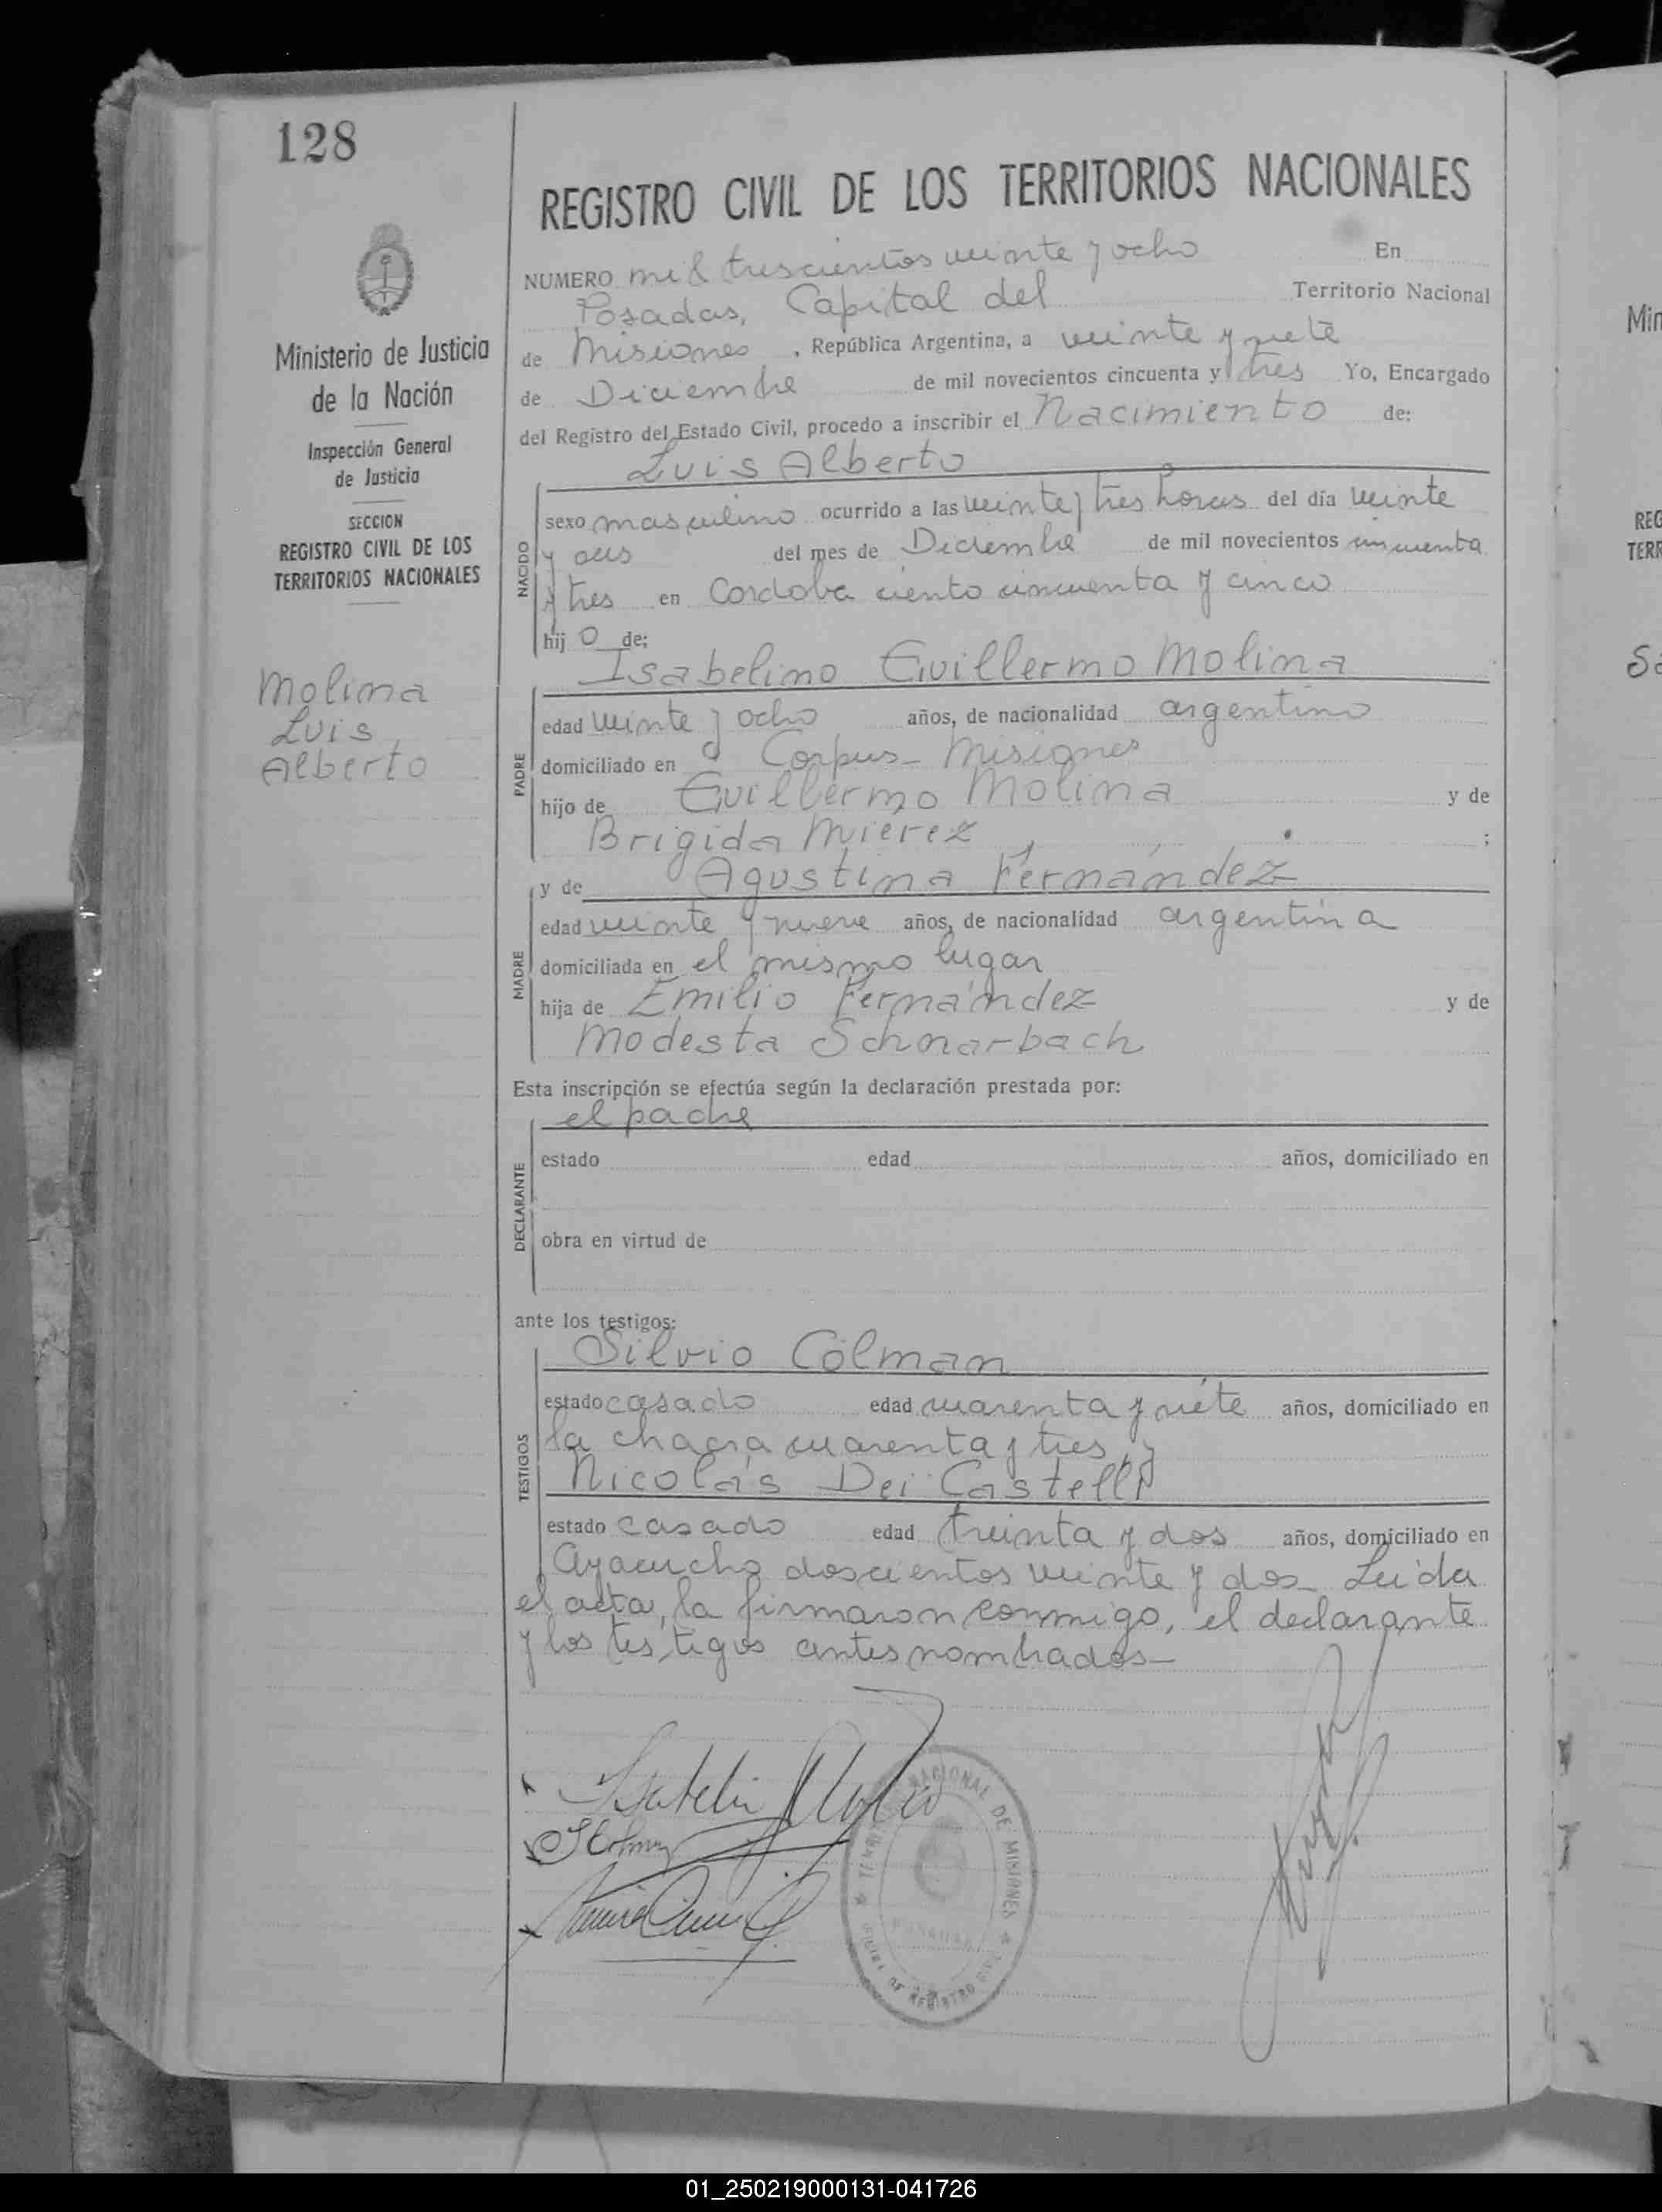 128
REGISTRO CIVIL DE LOS TERRITORIOS NACIONALES
Ministerio de Justicia
de la Nación
Inspección General
de Justicia
SECCION
REGISTRO CIVIL DE LOS
TERRITORIOS NACIONALES
Molina
Luis
Alberto
NUMERO mil trescientos veinte y ocho En
Posadas, Capital del Territorio Nacional
de Misiones, República Argentina, a veinte y siete
de Diciembre de mil novecientos cincuenta y tres Yo, Encargado
del Registro del Estado Civil, procedo a inscribir el Nacimiento de:
Luis Alberto
NACIDO
sexo masculino ocurrido a las veinte y tres horas del día veinte
y seis del mes de Diciembre de mil novecientos cincuenta
y tres en Cordoba ciento cincuenta y cinco
hij o de:
Isabelino Guillermo Molina
PADRE
edad veinte y ocho años, de nacionalidad argentino
domiciliado en Corpus - Misiones
hijo de Guillermo Molina y de
Brigida Mierez ;
y de Agustina Fernández
MADRE
edad veinte y nueve años, de nacionalidad argentina
domiciliada en el mismo lugar
hija de Emilio Fernández y de
Modesta Schnarbach
Esta inscripción se efectúa según la declaración prestada por:
el padre
DECLARANTE
estado edad años, domiciliado en
obra en virtud de
ante los testigos:
Silvio Colman
TESTIGOS
estado casado edad cuarenta y siete años, domiciliado en
la chacra cuarenta y tres, y
Nicolás Dei Castelli
estado casado edad treinta y dos años, domiciliado en
Ayacucho doscientos veinte y dos - Leída
el acta, la firmaron conmigo, el declarante
y los testigos antes nombrados -
NACIONAL DE MISIONES
REGISTRO CIVIL
Min
REG
TERR
01_250219000131-041726